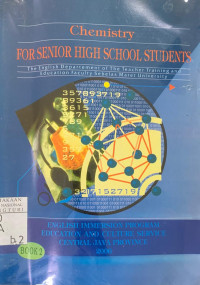 Chemistry
FOR SENIOR HIGH SCHOOL STUDENTS
The English Departement of The Teacher Training and
Education Faculty Sebelas Maret University
357893719
89361
3615
3271
27
3337152719
TAKAAN
b.2
BOOK 2
ENGLISH IMMERSION PROGRAM
EDUCATION AND CULTURE SERVICE
CENTRAL JAVA PROVINCE
2006